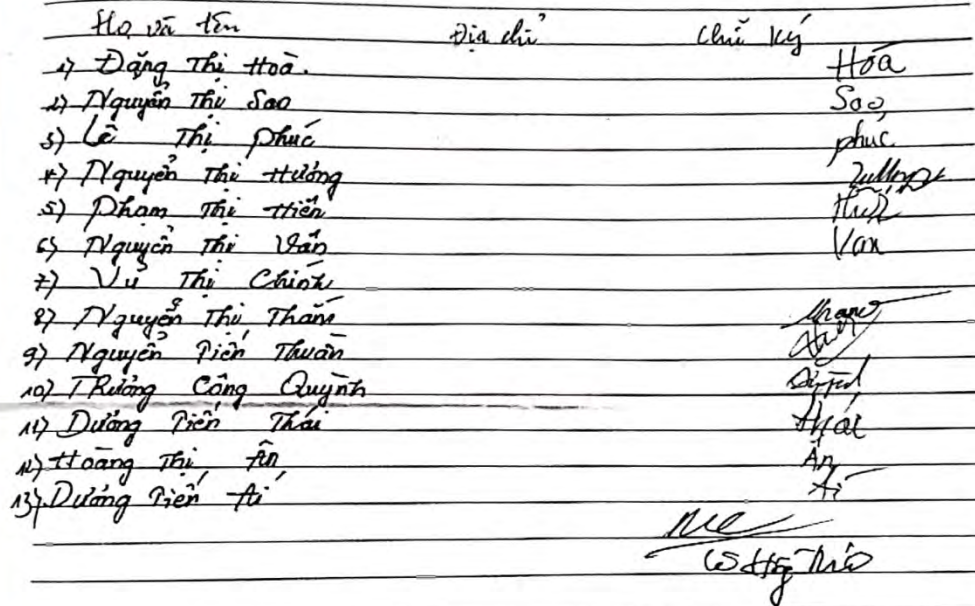 Họ và tên Địa chỉ Chữ ký
1) Đặng Thị Hoà. Hoà
2) Nguyễn Thị Sao Sao
3) Lê Thị Phúc phuc
4) Nguyễn Thị Hưởng
5) Phạm Thị Hiền
6) Nguyễn Thị Vấn Van
7) Vũ Thị Chinh
8) Nguyễn Thị Thắm
9) Nguyễn Tiến Thuân
10) Trương Công Quỳnh
11) Dương Tiến Thái thái
12) Hoàng Thị Ân Ân
13) Dương Tiến Ái Ái